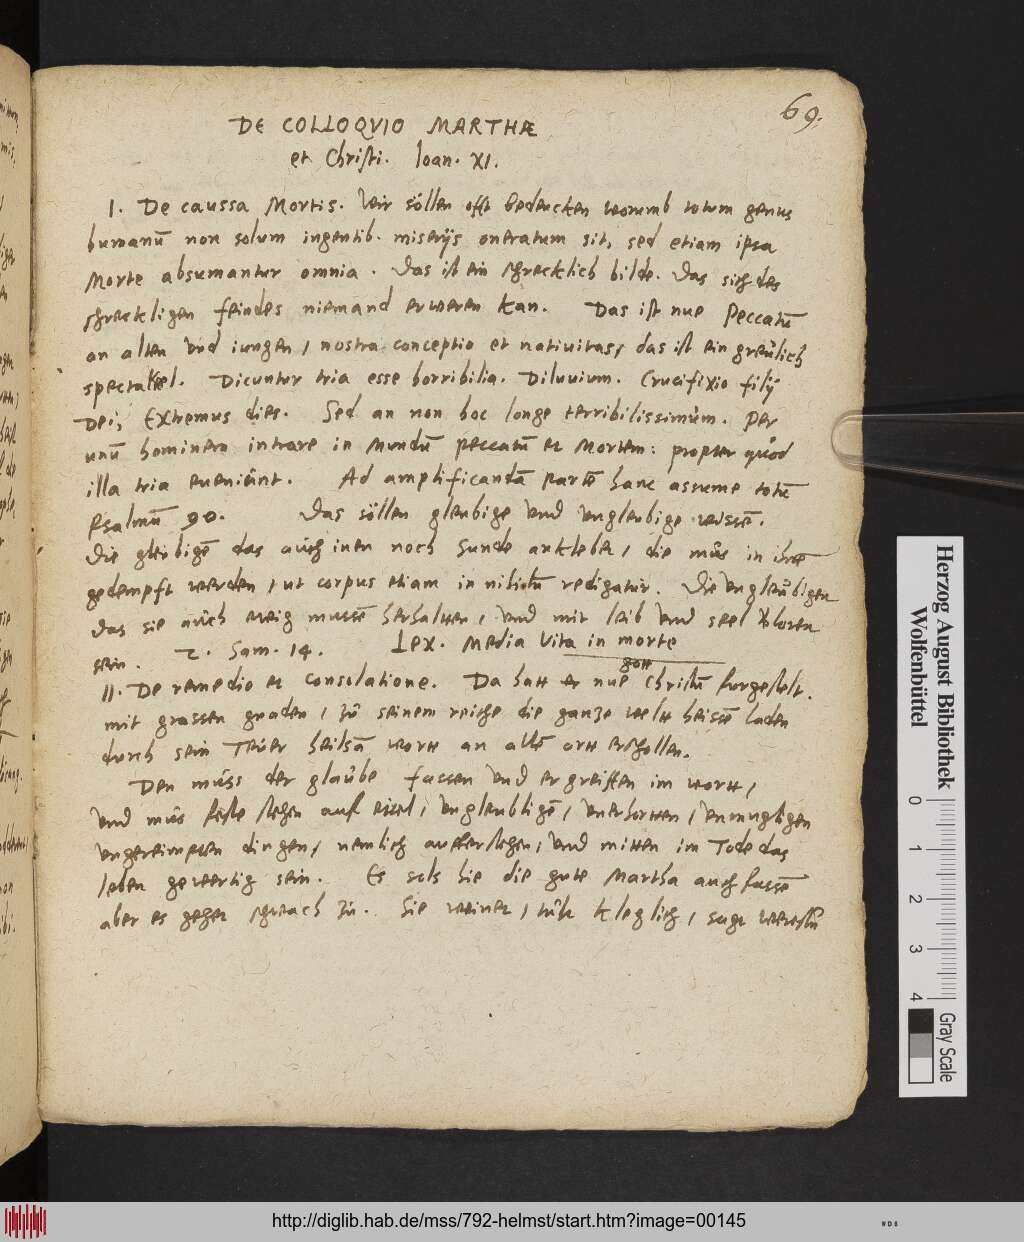 69.
DE COLLOQVIO MARTHÆ
et Christi. Ioan. XI.
I. De caussa Mortis. Wir söllen offt bedencken worumb totum genus
humanū non solum ingentib. miserijs oneratum sit, sed etiam ipsa
Morte absumantur omnia. Das ist ein schrecklich bilde. Das sich des
schreckligen feindes niemand erweren kan. Das ist nue Peccatū
an alten vnd iungen, nostra conceptio et natiuitas, das ist ein greülich
spectakel. Dicuntur tria esse horribilia. Diluuium. Crucifixio filij
Dei, Extremus dies. Sed an non hoc longe terribilissimum. Per
unū hominem intrare in Mundū peccatū et Mortem: propter quod
illa tria eueniunt. Ad amplificandā partē hanc assume totū
Psalmū 90. Das söllen gleubige vnd vngleubige wissē.
Die gleubigē das auch inen noch Sunde anklebet, die mus in ihne
gedempft werden, ut corpus etiam in nihilū redigatur. Die vngleubigen
das sie auch ewig mussē herhalten, vnd mit leib vnd seel v̓loren
sein. 2. Sam. 14. Lex. Media vita in morte
II. De remedio et consolatione. Da hatt er nue gott Christū furgestelt.
mit grossen gnaden, zu seinem reiche die ganze welt heissē laden
durch sein Teuer heilsā wort an allē ortt erschollen.
Den muss der glaube fassen vnd ergreiffen im wortt,
vnd mus feste stehen auf eitel, vngleubligē, vnerhorten, vnmugligen
vngereimpten dingen, nemlich aufferstehen, vnd mitten im Tode das
leben gewertig sein. Es sols hie die gute Martha auch fassē
aber es gehet schwach zu. Sie weinet, tutt kleglich, sagt werestu
Herzog August Bibliothek
Wolfenbüttel
0 1 2 3 4
Gray Scale
http://diglib.hab.de/mss/792-helmst/start.htm?image=00145